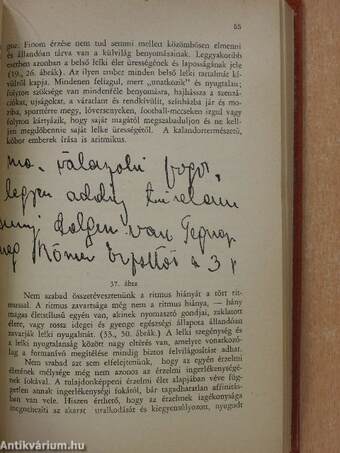 55
gsz. Finom érzése nem tud semmi mellett közömbösen elmenni
és állandóan tárva van a külvilág benyomásaira. Leggyakoribb
esetben azonban a belső lelki élet ürességének és laposságának jele
(19., 26. ábrák). Az ilyen ember minden belső lelki tartalmát kí-
vülről kapja. Mindenen felizgul, mert „unatkozik" és nyugtalan;
folyton szüksége van mindenféle benyomásra, hajhássza a szenzá-
ciókat, ujságokat, a váratlant és rendkívülit, színházba jár és mo-
ziba, sportérre megy, lóversenyeken, football-meccseken izgul vagy
folyton kártyázik, hogy saját magától megszabaduljon és ne kell-
jen megdöbbennie saját lelke ürességétől. A kalandortermészetű,
kóborhajlamú emberek írása is aritmikus.
válaszolni fogok,
legyen addig türelem
dolgom van Tegnap
37. ábra
Nem szabad összetévesztenünk a ritmus hiányát a tört rit-
mussal. A ritmus zavartsága még nem a ritmus hiánya, — hány
magas életstílusú egyén van, akinek nyomasztó gondjai, zaklatott
élete, vagy rossz idegei és gyenge egészségi állapota állandóan
zavarják lelki nyugalmát. (33., 50. ábrák.) A lelki szegénység és
a lelki nyugtalanság között nagy eltérés van, amelyre vonatkozó-
lag a formanívó megítélése mindig biztos felvilágosítást adhat.
Nem szabad azt sem elfelejtenünk, hogy az egyén érzelmi
életének mélysége még nem azonos az érzelmi ingerlékenységé-
nek fokával. A tulajdonképpeni érzelmi élet alapjában véve füg-
getlen annak ingerlékenységi fokától, bár tagadhatatlan affinitás-
ban van vele. Hiszen érthető, hogy az érzelmek izgékonysága
megnehezíti az akarat uralkodását és kiegyensúlyozott, nyugodt
antikvárium.hu